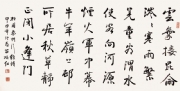 雲氣接昆侖
涔涔塞雨繁
羌童看渭水
使客向河源
煙火軍中幕
牛羊嶺上村
所居秋草靜
正閉小蓬門